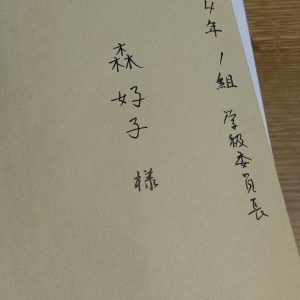 4年1組 学級委員長
森好子
様